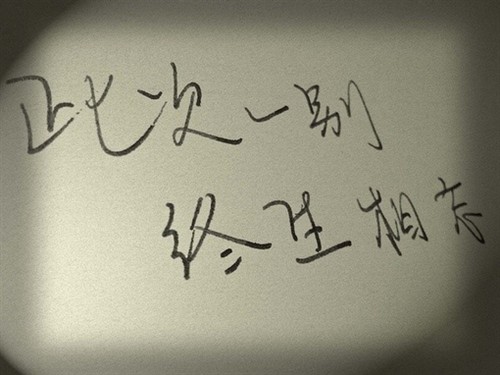 此次一别
终生相忘